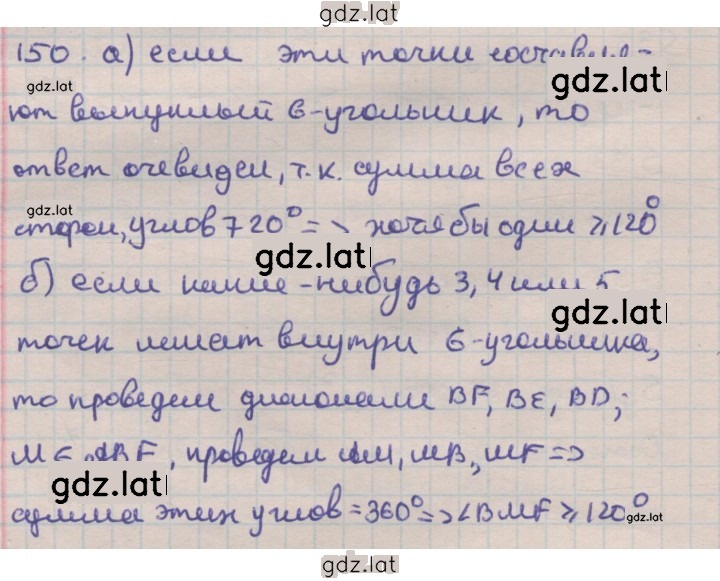 gdz.lat
150. а) если эти точки составля-
gdz.lat gdz.lat
ют выпуклый 6-угольник, то
ответ очевиден, т.к. сумма всех
gdz.lat
сторон, углов 720° => хотя бы один ≥120°
gdz.lat
б) если какие-нибудь 3, 4 или 5
gdz.lat
точек лежат внутри 6-угольника,
то проведем диагонали BF, BE, BD;
M ABF, проведем AM, MB, MF =>
gdz.lat
сумма этих углов = 360° => ∠BMF ≥ 120°
gdz.lat
gdz.lat